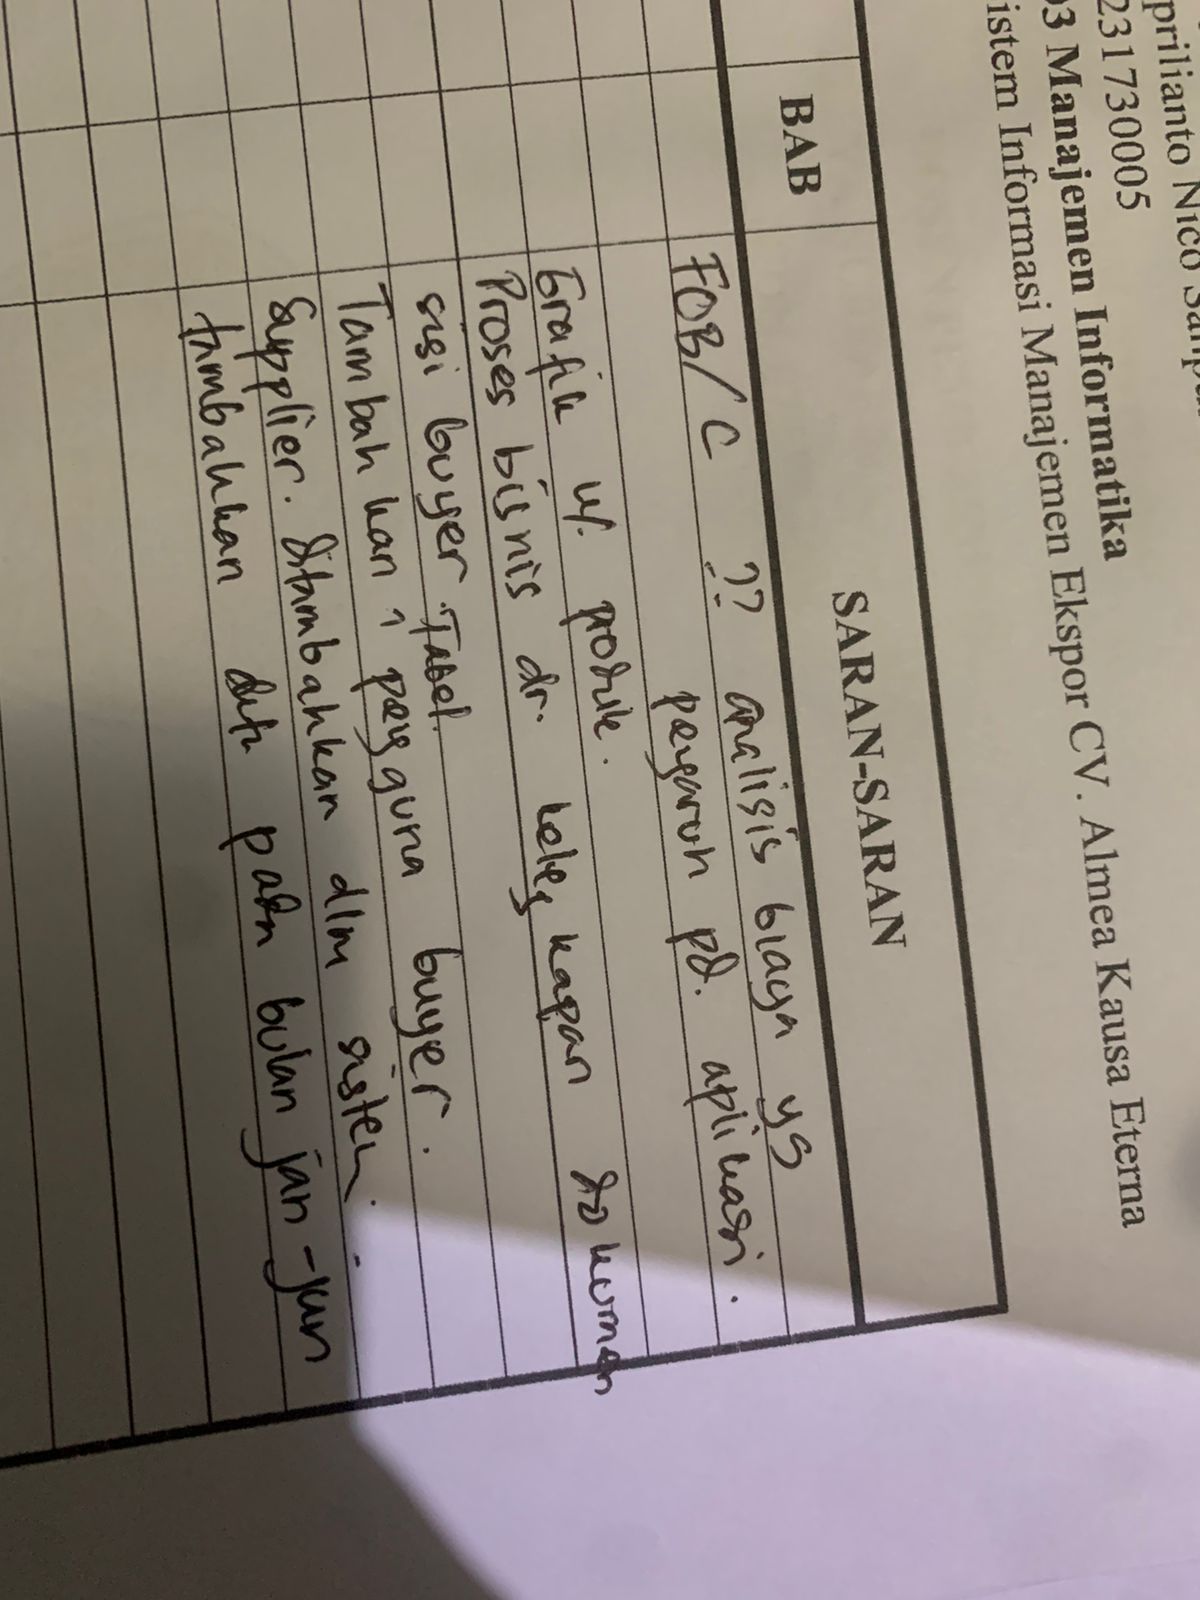 prilianto Nico Sanpu
231730005
03 Manajemen Informatika
istem Informasi Manajemen Ekspor CV. Almea Kausa Eterna
BAB
SARAN-SARAN
FOB/C ?? analisis biaya yg
pengaruh pd. aplikasi.
Grafik u/. produk.
Proses bisnis dr. kapan dokumen
sisi buyer. Tabel.
Tambahkan 1 pengguna buyer.
Supplier. ditambahkan dlm sistem.
tambahkan data pada bulan jan-jun